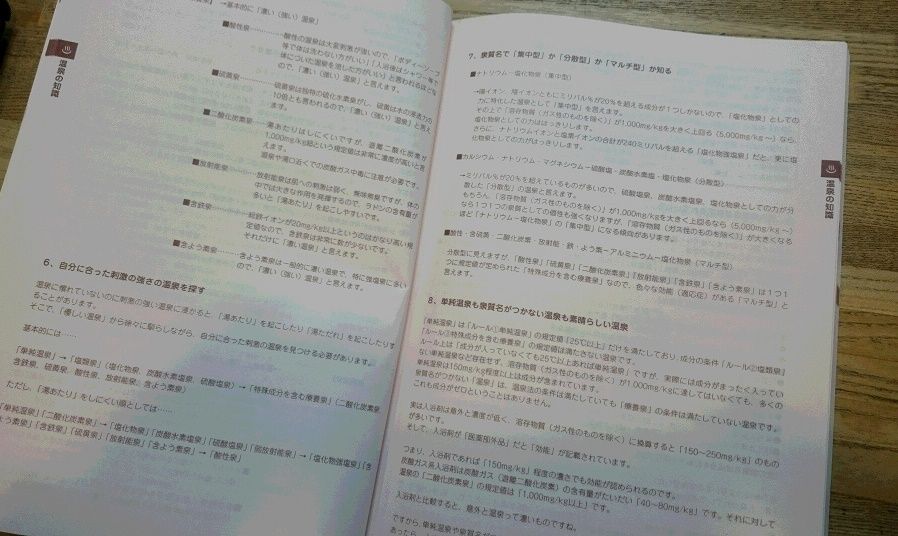 温泉の知識
→基本的に「濃い（強い）温泉」
■酸性泉
酸性の温泉は大変刺激が強いので、「ボディーソープ
等で体は洗わない方がいい」「入浴後はシャワー等で
体についた温泉を流した方がいい」と言われるほどな
ので、「濃い（強い）温泉」と言えます。
■硫黄泉
硫黄泉は独特の硫化水素臭がし、硫黄は水の浸透力の
10倍とも言われるので、「濃い（強い）温泉」と言え
ます。
■二酸化炭素泉
湯あたりはしにくいですが、遊離二酸化炭素が
1,000mg/kg超という規定値は非常に濃度が高いと言
えます。
温泉や湯口近くでの炭酸ガス中毒に注意が必要です。
■放射能泉
放射能泉は肌への刺激は弱く、無味無臭ですが、体の
中では大きな作用を発揮するので、ラドンの含有量が
多いと「湯あたり」を起こしやすいです。
■含鉄泉
総鉄イオンが20mg/kg以上というのはかなり高い規
定値なので、含鉄泉は非常に数が少ないです。
それだけに「濃い温泉」と言えます。
■含よう素泉
含よう素泉は一般的に濃い温泉で、特に強塩泉に多い
ので、「濃い（強い）温泉」と言えます。
6、自分に合った刺激の強さの温泉を探す
温泉に慣れていないのに刺激の強い温泉に浸かると、「湯あたり」を起こしたり「湯ただれ」を起こしたりす
ることがあります。
そこで、「優しい温泉」から徐々に馴らしながら、自分に合った刺激の温泉を見つける必要があります。
基本的には……
「単純温泉」→「塩類泉」（塩化物泉、炭酸水素塩泉、硫酸塩泉）→「特殊成分を含む療養泉」（二酸化炭素泉
含鉄泉、硫黄泉、酸性泉、放射能泉、含よう素泉）
ただし、「湯あたり」をしにくい順としては……
「単純温泉」「二酸化炭素泉」→「塩化物泉」「炭酸水素塩泉」「硫酸塩泉」「弱放射能泉」→「塩化物強塩泉」「含
よう素泉」「含鉄泉」「硫黄泉」「放射能泉」「含よう素泉」→「酸性泉」
7、泉質名で「集中型」か「分散型」か「マルチ型」か知る
■ナトリウム－塩化物泉（集中型）
→陽イオン、陰イオンともにミリバル％が20％を超える成分が１つしかないので、「塩化物泉」としての
力に特化した温泉として「集中型」を言えます。
その上で「溶存物質（ガス性のものを除く）」が1,000mg/kgを大きく上回る（5,000mg/kg～）なら、
塩化物泉としての力ははっきりします。
さらに、ナトリウムイオンと塩素イオンの合計が240ミリバルを超える「塩化物強塩泉」だと、更に塩
化物泉としての力がはっきりします。
■カルシウム・ナトリウム・マグネシウム－硫酸塩・炭酸水素塩・塩化物泉（分散型）
→ミリバル％が20％を超えているものが多いので、硫酸塩泉、炭酸水素塩泉、塩化物泉としての力が分
散した「分散型」の温泉と言えます。
もちろん、「溶存物質（ガス性のものを除く）」が1,000mg/kgを大きく上回るなら（5,000mg/kg～）
なら１つ１つの泉質としての個性も強くなりますが、「溶存物質（ガス性のものを除く）」が大きくなる
ほど「ナトリウム－塩化物泉」の「集中型」になる傾向があります。
■酸性・含硫黄・二酸化炭素・放射能・鉄・よう素－アルミニウム－塩化物泉（マルチ型）
分散型に見えますが、「酸性泉」「硫黄泉」「二酸化炭素泉」「放射能泉」「含鉄泉」「含よう素泉」は１つ１
つに規定値が定められた「特殊成分を含む療養泉」なので、色々な効能（適応症）がある「マルチ型」と
言えます。
8、単純温泉も泉質名がつかない温泉も素晴らしい温泉
「単純温泉」は「ルール①単純温泉」の規定値「25℃以上」だけを満たしており、成分の条件「ルール②塩類泉」
「ルール③特殊成分を含む療養泉」の規定値は満たさない温泉です。
ルール上は「成分が入っていなくても25℃以上あれば単純温泉」ですが、実際には成分がまったく入ってい
ない単純温泉など存在せず、溶存物質（ガス性のものを除く）が1,000mg/kgに達してはいなくても、多くの
単純温泉は150mg/kg程度以上は成分が含まれています。
泉質名がつかない「温泉」は、温泉法の条件は満たしていても「療養泉」の条件は満たしていない温泉です。
これも成分がゼロということはありません。
実は入浴剤は意外と濃度が低く、溶存物質（ガス性のものを除く）に換算すると「150～250mg/kg」のもの
が多いです。
そして、入浴剤が「医薬部外品」だと「効能」が記載されています。
つまり、入浴剤であれば「150mg/kg」程度の濃さでも効能が認められるのです。
炭酸ガス系入浴剤は炭酸ガス（遊離二酸化炭素）の含有量がだいたい「40～80mg/kg」です。それに対して
温泉の「二酸化炭素泉」の規定値は「1,000mg/kg以上」です。
入浴剤と比較すると、意外と温泉って濃いものですね。
ですから、単純温泉や泉質名が
あったら、
温泉の知識